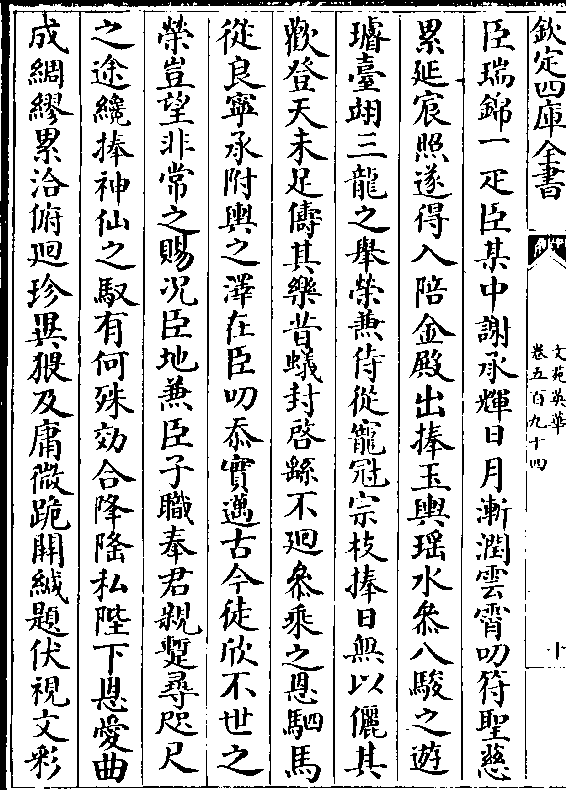 欽定四庫全書
文苑英華
卷五百九十四
十
臣瑞錦一疋臣某中謝承輝日月漸潤雲霄叨符聖慈
累延宸照遂得入陪金殿出捧玉輿瑶水叅八駿之遊
璿臺翊三龍之舉榮兼侍從寵冠宗枝捧日無以儷其
歡登天未足儔其樂昔蟻封啓繇不廻叅乘之恩駟馬
從良寧承附輿之澤在臣叨忝實邁古今徒欣不世之
榮豈望非常之賜况臣地兼臣子職奉君親蹔尋咫尺
之途纔捧神仙之馭有何殊効合降隆私陛下恩愛曲
成綢繆累洽俯廻珍異猥及庸微跪開緘題伏視文彩